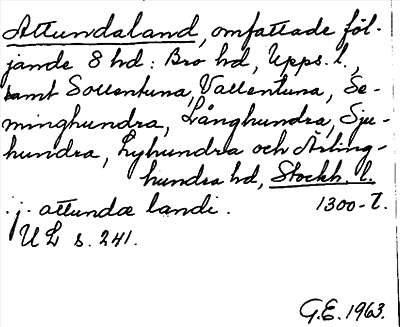 Attundaland, omfattade föl-
jande 8 hd: Bro hd, Upps. l.,
samt Sollentuna, Vallentuna, Se-
minghundra, Långhundra, Sju-
hundra, Lyhundra och Ärling-
hundra hd, Stockh. l.
.j. attundæ landi. 1300-t.
U L s. 241.
G.E. 1963.